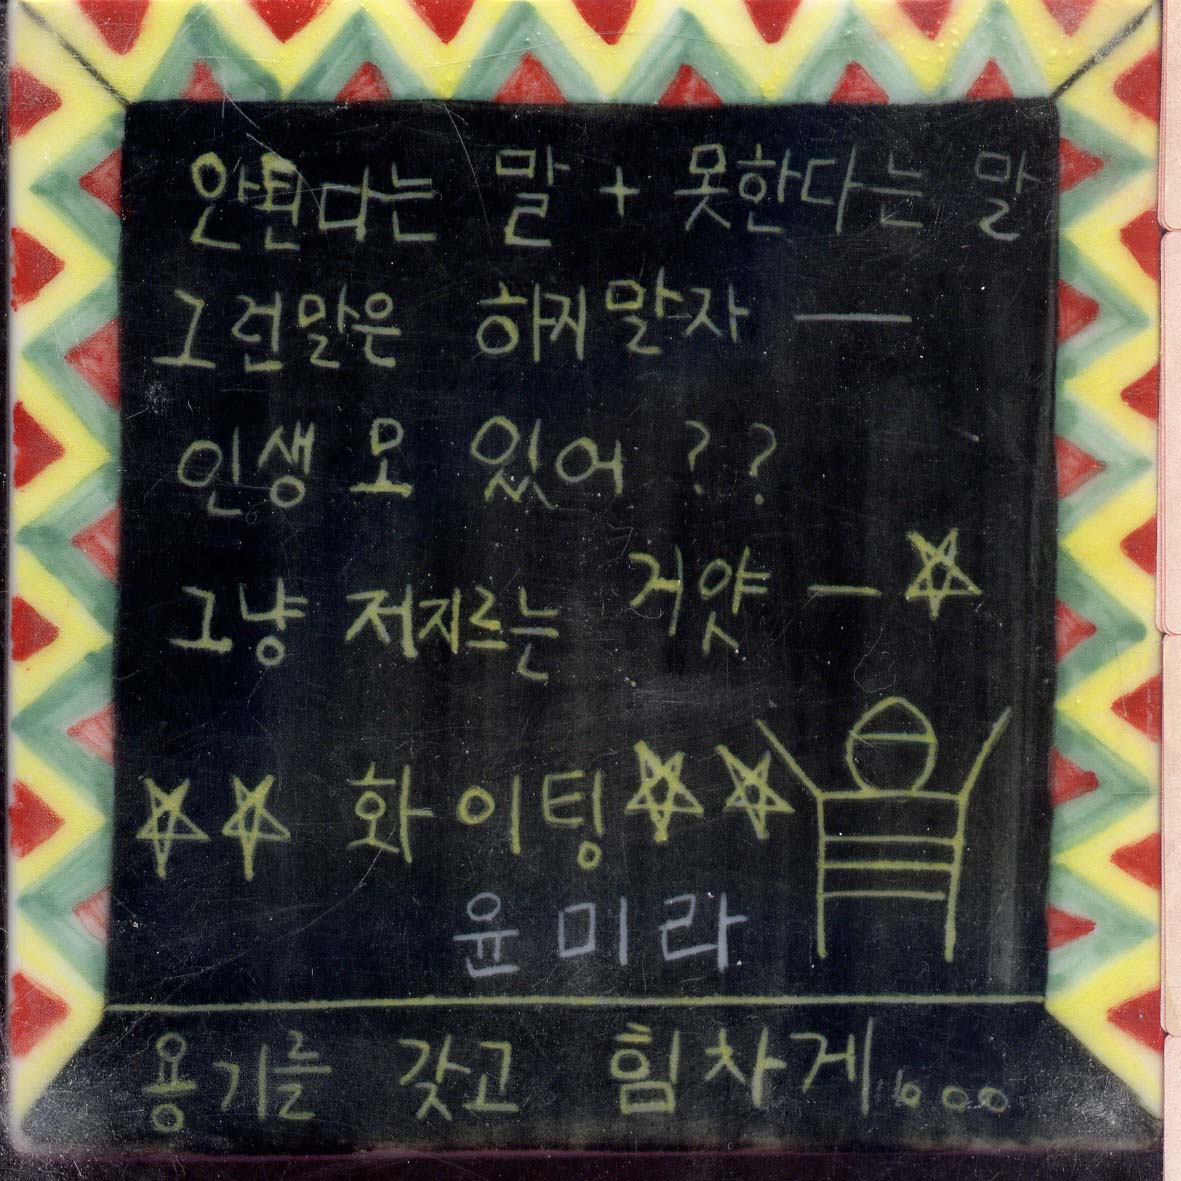 안된다는 말 + 못한다는 말
그런말은 하지말자 —
인생 모 있어 ??
그냥 저지르는 거얏 — ☆
☆☆ 화이팅 ☆☆
윤미라
용기를 갖고 힘차게...